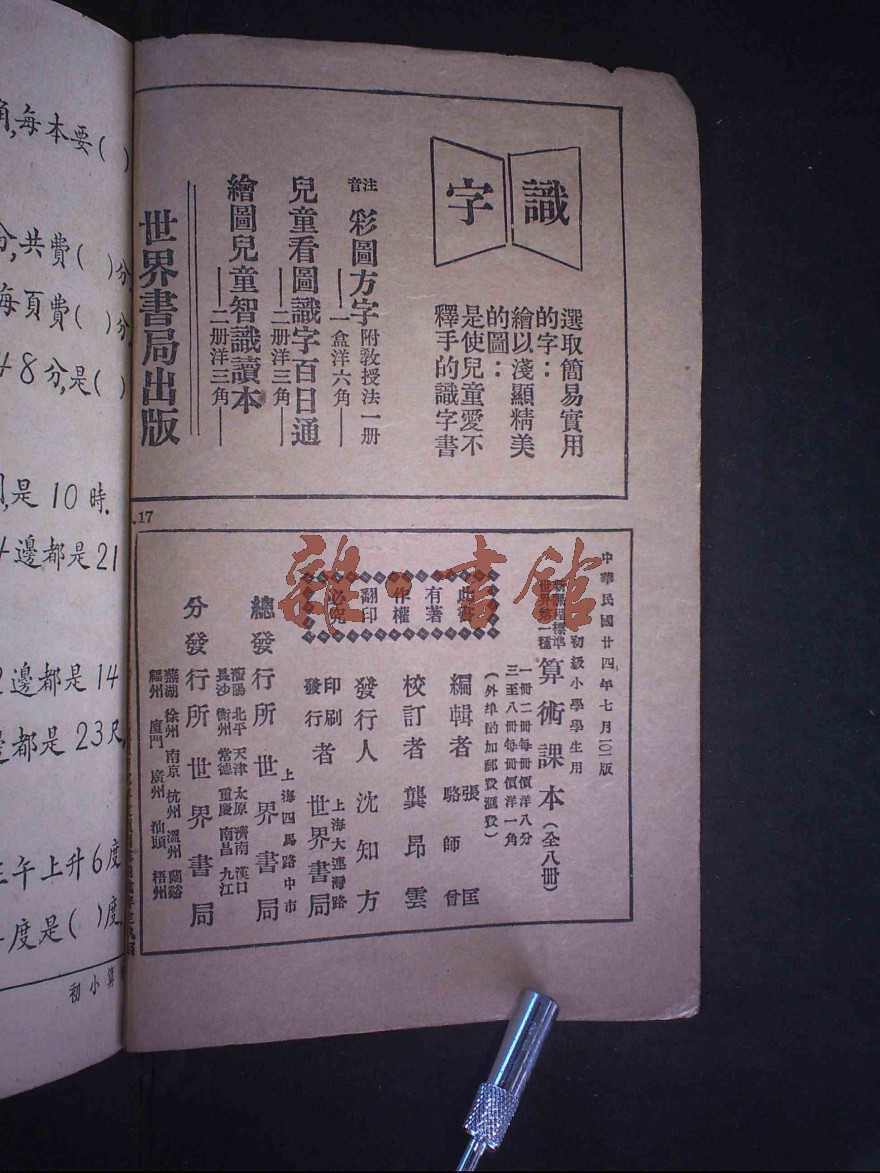 識字
選取簡易實用
的字：
繪以淺顯精美
的圖：
是使兒童愛不
釋手的識字書
注音 彩圖方字 附教授法一册
一盒洋六角
兒童看圖識字百日通
二册洋三角
繪圖兒童智識讀本
二册洋三角
世界書局出版
.17
中華民國廿四年七月一〇一版
新課程標準世界第一種 初級小學學生用
算術課本（全八冊）
一冊二冊每冊價洋八分
三至八冊每冊價洋一角
（外埠酌加郵費滙費）
編輯者 張匡
駱師曾
校訂者 龔昂雲
發行人 沈知方
上海大連灣路
印刷發行者 世界書局
上海四馬路中市
總發行所 世界書局
瀋陽 北平 天津 太原 濟南 漢口
長沙 衡州 常德 重慶 南昌 九江
分發行所 世界書局
蕪湖 徐州 南京 杭州 溫州 蘭谿
福州 廈門 廣州 汕頭 梧州
此書
有著
作權
翻印
必究
雜·書館
角,每本要( )
分,共費( )分
每頁費( )分
48分,是( )
是10時.
4邊都是21
2邊都是14
邊都是23尺
午上升6度
度是( )度
初小算